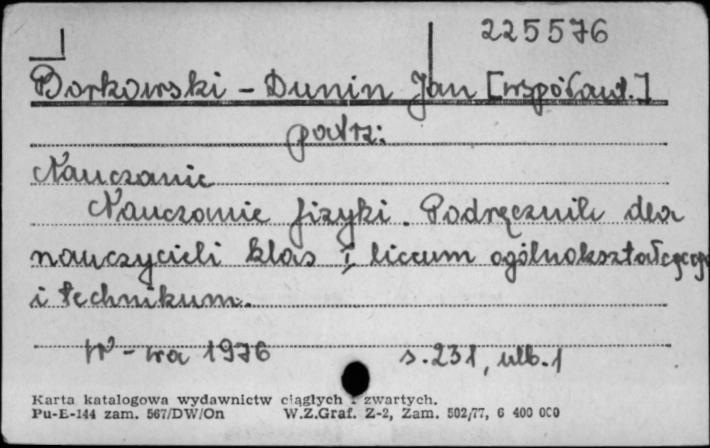 225576
Borkowski - Dunin Jan [współaut.]
patrz:
Nauczanie
Nauczanie fizyki. Podręcznik dla
nauczycieli klas I, liceum ogólnokształcącego
i technikum.
W-wa 1976 s. 231, ulb. 1
Karta katalogowa wydawnictw ciągłych i zwartych.
Pu-E-144 zam. 567/DW/On W.Z.Graf. Z-2, Zam. 502/77, 6 400 000